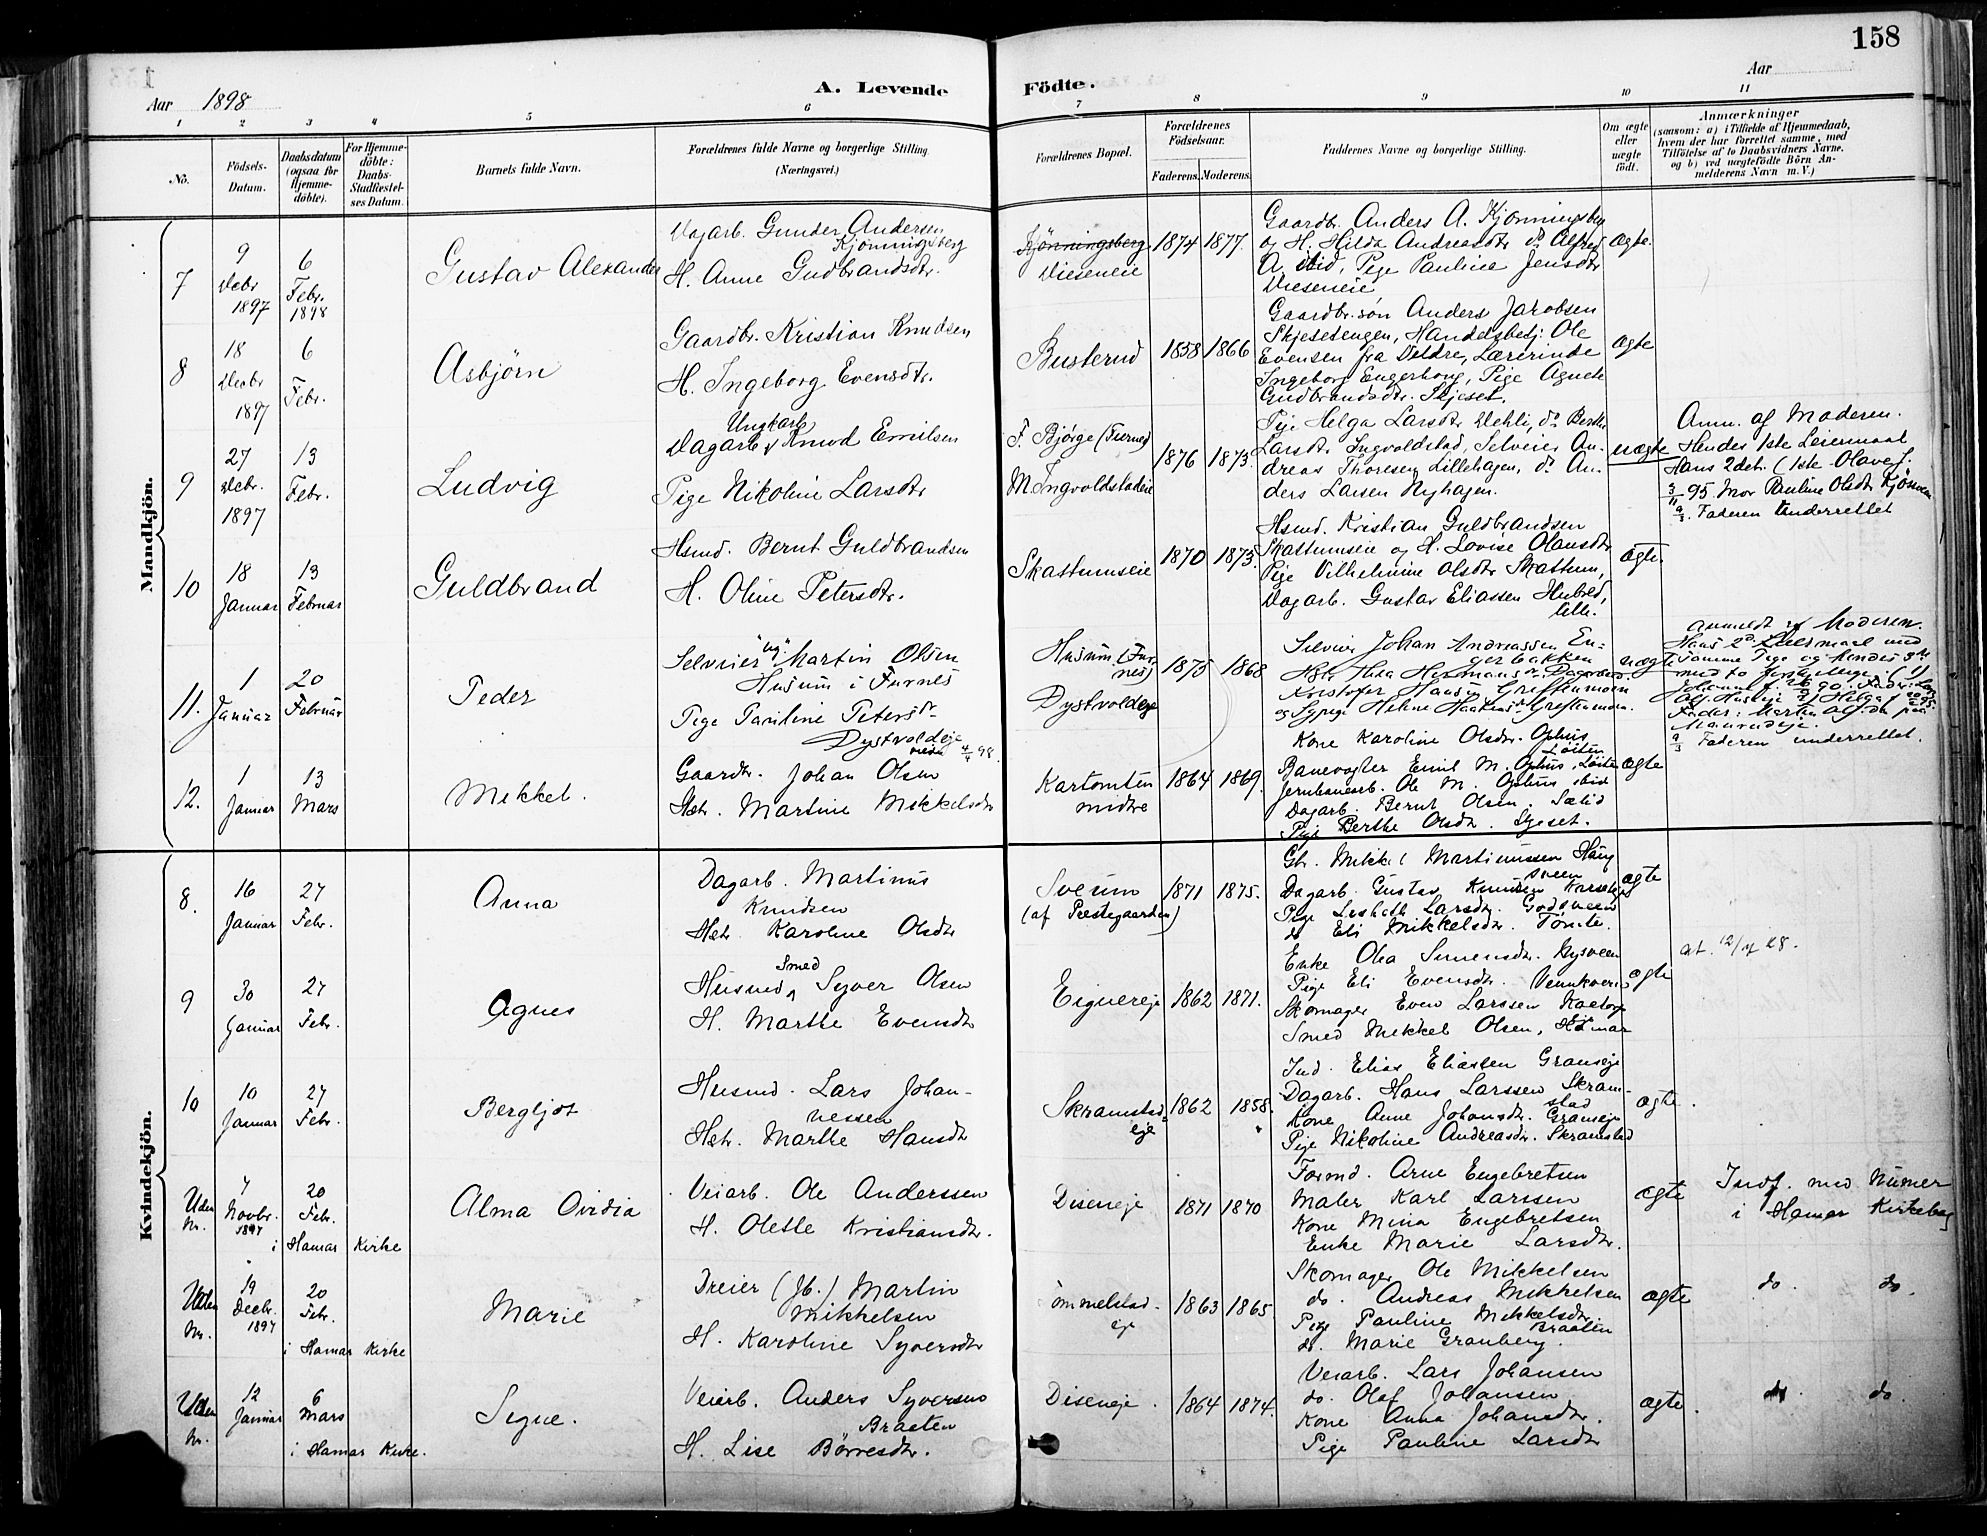 158
Aar 1898
A. Levende Födte.
Aar
1 2 3 4 5 6 7 8 9 10 11
No.
Födsels-Datum.
Daabsdatum (ogsaa for Hjemmedöbte).
For Hjemmedöbte: Daabs-Stadfæstelses Datum.
Barnets fulde Navn.
Forældrenes fulde Navne og borgerlige Stilling. (Næringsvei.)
Forældrenes Bopæl.
Forældrenes Födselsaar.
Faderens. Moderens.
Faddernes Navne og borgerlige Stilling.
Om ægte eller uægte født.
Anmærkninger
(saasom: a) i Tilfælde af Hjemmedaab, hvem der har forrettet samme, med Tilföielse af to Daabsvidners Navne, og b) ved uægtefödte Börn Anmelderens Navn m. V.)
Mandkjön.
7
9 Decbr 1897
6 Febr. 1898
Gustav Alexander
Dagarb. Gunder Andersen
Kjønningsberg
H. Anne Gudbrandsdtr.
Kjønningsberg
Dieseneie
1874 1877.
Gaardbr. Anders A. Kjønningsberg
og H. Hilda Andreasdtr do Alfred
A. ibid, Pige Pauline Jensdtr
Dieseneie
ægte.
8
18 Decbr 1897
6 Febr.
Asbjörn
Gaardbr. Kristian Knudsen
H. Ingeborg Evensdtr.
Busterud
1858 1866
Gaardbr.søn Anders Jakobsen
Skjesetengen, Handelsbetj. Ole
Evensen fra Veldre, Lærerinde
Ingeborg Engerhong, Pige Agnete
Gudbrandsdtr. Skjeset.
ægte
9
27 Decbr. 1897
13 Febr.
Ludvig
Ungkarl
Dagarb. Knud Emilsen
Pige Nikoline Larsdtr
F. Bjørge (Furnes)
M. Ingvoldstadeie
1876 1873.
Pige Helga Larsdtr Dehli, do Berthe
Larsdtr Ingvoldstad, Selveier Andreas
Thoresen Lillehagen, do Anders
Larsen Nyhagen.
uægte
Anm. af Moderen.
Hendes 1ste Leiermaal
Hans 2det. (1ste Olave f.
3/11 95. Mor Pauline Olsdtr Kjønsven
9/3. Faderen underrettet
10
18 Januar
13 Februar
Guldbrand
Hsmd. Bernt Guldbrandsen
H. Oline Petersdtr.
Skattumseie
1870 1873.
Hsmd. Kristian Guldbrandsen
Skattumseie og H. Lovise Olausdtr
Pige Vilhelmine Olsdtr Skattum,
Dagarb. Gustav Eliassen Hubred,
lille.
ægte.
11.
1 Januar
20 Februar
Peder
Selveier Martin Olsen
Husum i Furnes
Pige Pauline Petersdtr
Dystvoldeje
Husum (Furnes)
Dystvoldeje
1875 1868
Selveier Johan Andreassen Engerbakken
Kristofer Hansen Greftenmoen
og Sypige Helene Haakensdtr Greftenmoen.
uægte
Anmeldt af Moderen.
Hans 2d Leiermaal med
samme Pige og hendes 3die
9/3 Faderen underrettet.
12.
1 Januar
13 Mars
Mikkel.
Gaardbr. Johan Olsen
Hstr. Martine Mikkelsdtr
Kartomten midtre
1864 1869.
Kone Karoline Olsdtr. Ophus
Løiten
Banevogter Emil M. Ophus, Løiten
Jernbanearb. Ole M. Ophus ibid
Dagarb. Bernt Olsen. Sælid
Pige Berthe Olsdtr. Sjeset.
ægte
Kvindekjön.
8.
16 Januar
27 Febr.
Anna
Dagarb. Martinus
Knudsen
Hstr. Karoline Olsdtr
Sveum
(af Prestegaarden)
1871 1875.
Gbr. Mikkel Martinussen Haugsveen
Dagarb. Gustav Knudsen
Pige Lisbeth Larsdtr. Godsveen
do Eli Mikkelsdtr. Tømte.
ægte
9
30 Januar
27 Febr.
Agnes
Smed
Husmd, Syver Olsen
H. Marthe Evensdtr
Eignereje
1862 1871.
Enke Olea Simensdtr. Nysveen
Pige Eli Evensdtr. Vennkvern
Skomager Even Larssen
Smed Mikkel Olsen, Hamar
ægte
at. 12/4 28.
10
10 Januar
27 Febr.
Bergljot
Husmd. Lars Johannessen
Hstr. Marthe Hansdtr
Skramstadeje
1862 1858.
Ind. Elias Eliassen Granseje
Dagarb. Hans Larssen Skramstad
Kone Anne Johansdtr. Granseje
Pige Nikoline Andreasdtr. Skramstad
ægte.
Uden Nr.
7 Novbr. 1897
20 Febr.
i Hamar Kirke
Alma Ovidia
Veiarb. Ole Anderssen
H. Olette Kristiansdtr.
Diseneje
1871 1870
Formd. Arne Engebretsen
Maler Karl Larssen
Kone Mina Engebretsen
Enke Marie Larsdtr.
ægte
Indf. med Numer
i Hamar Kirkebog
Uden Nr.
19 Decbr. 1897
20 Febr.
i Hamar Kirke
Marie
Dreier (Jb.) Martin
Mikkelsen
H. Karoline Syversdtr
Tommelstadeje
1863 1865
Skomager Ole Mikkelsen
do. Andreas Mikkelsen
Pige Pauline Mikkelsdtr.
Braaten
do. Marie Granberg.
ægte
do. do.
Uden Nr.
12 Januar
6 Mars
i Hamar Kirke.
Signe.
Veiarb. Anders Syversen
Braaten
H. Lise Børresdtr.
Diseneje.
1864 1874.
Veiarb. Lars Johansen
do. Olaf Johansen
Kone Anna Johansdtr.
Pige Pauline Larsdtr
ægte.
do. do